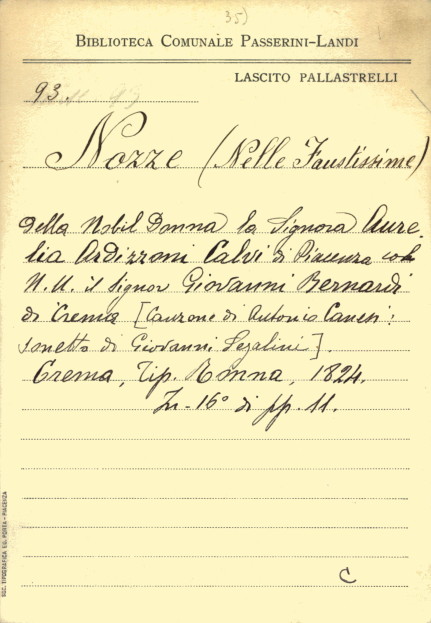 35)
BIBLIOTECA COMUNALE PASSERINI-LANDI
LASCITO PALLASTRELLI
93.
Nozze (Nelle Faustissime)
della Nobil Donna la Signora Aure-
lia Ardizzoni Calvi di Piacenza col
N. U. il Signor Giovanni Bernardi
di Crema [Canzone di Antonio Canesi:
sonetto di Giovanni Segalini].
Crema, Tip. Ronna, 1824.
In-16° di pp. 11.
C
SOC. TIPOGRAFICA ED. PORTA - PIACENZA